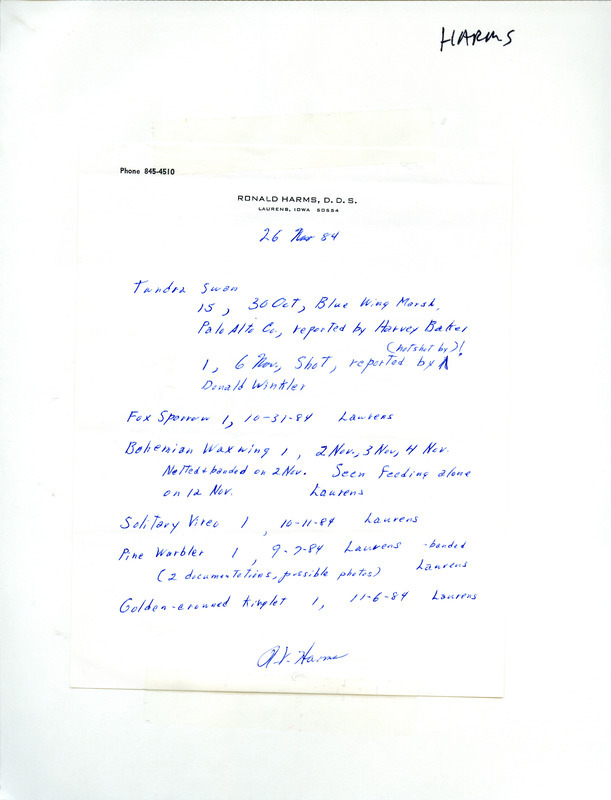 HARMS
Phone 845-4510
RONALD HARMS, D. D. S.
LAURENS, IOWA 50554
26 Nov 84
Tundra Swan
15, 30 Oct, Blue Wing Marsh,
Palo Alto Co, reported by Harvey Baker
(not shot by)!
1, 6 Nov., Shot, reported by ^
Donald Winkler
Fox Sparrow 1, 10-31-84 Laurens
Bohemian Waxwing 1, 2 Nov., 3 Nov, 4 Nov.
Netted + banded on 2 Nov. Seen feeding alone
on 12 Nov. Laurens
Solitary Vireo 1, 10-11-84 Laurens
Pine Warbler 1, 9-7-84 Laurens -banded
(2 documentations, possible photos) Laurens
Golden-crowned Kinglet 1, 11-6-84 Laurens
R.V. Harms